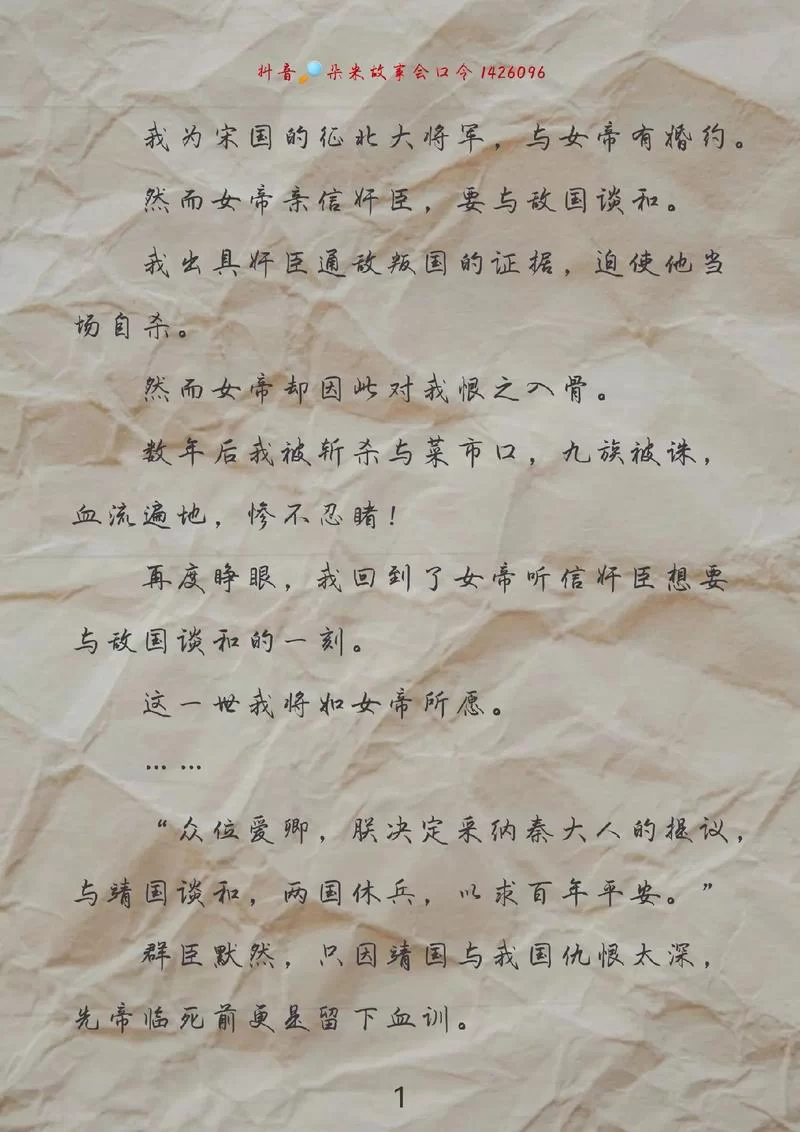 抖音🔍朵米故事会口令1426096
我为宋国的征北大将军，与女帝有婚约。
然而女帝亲信奸臣，要与敌国谈和。
我出具奸臣通敌叛国的证据，迫使他当
场自杀。
然而女帝却因此对我恨之入骨。
数年后我被斩杀与菜市口，九族被诛，
血流遍地，惨不忍睹！
再度睁眼，我回到了女帝听信奸臣想要
与敌国谈和的一刻。
这一世我将如女帝所愿。
……
“众位爱卿，朕决定采纳秦大人的提议，
与靖国谈和，两国休兵，以求百年平安。”
群臣默然，只因靖国与我国仇恨太深，
先帝临死前更是留下血训。
1